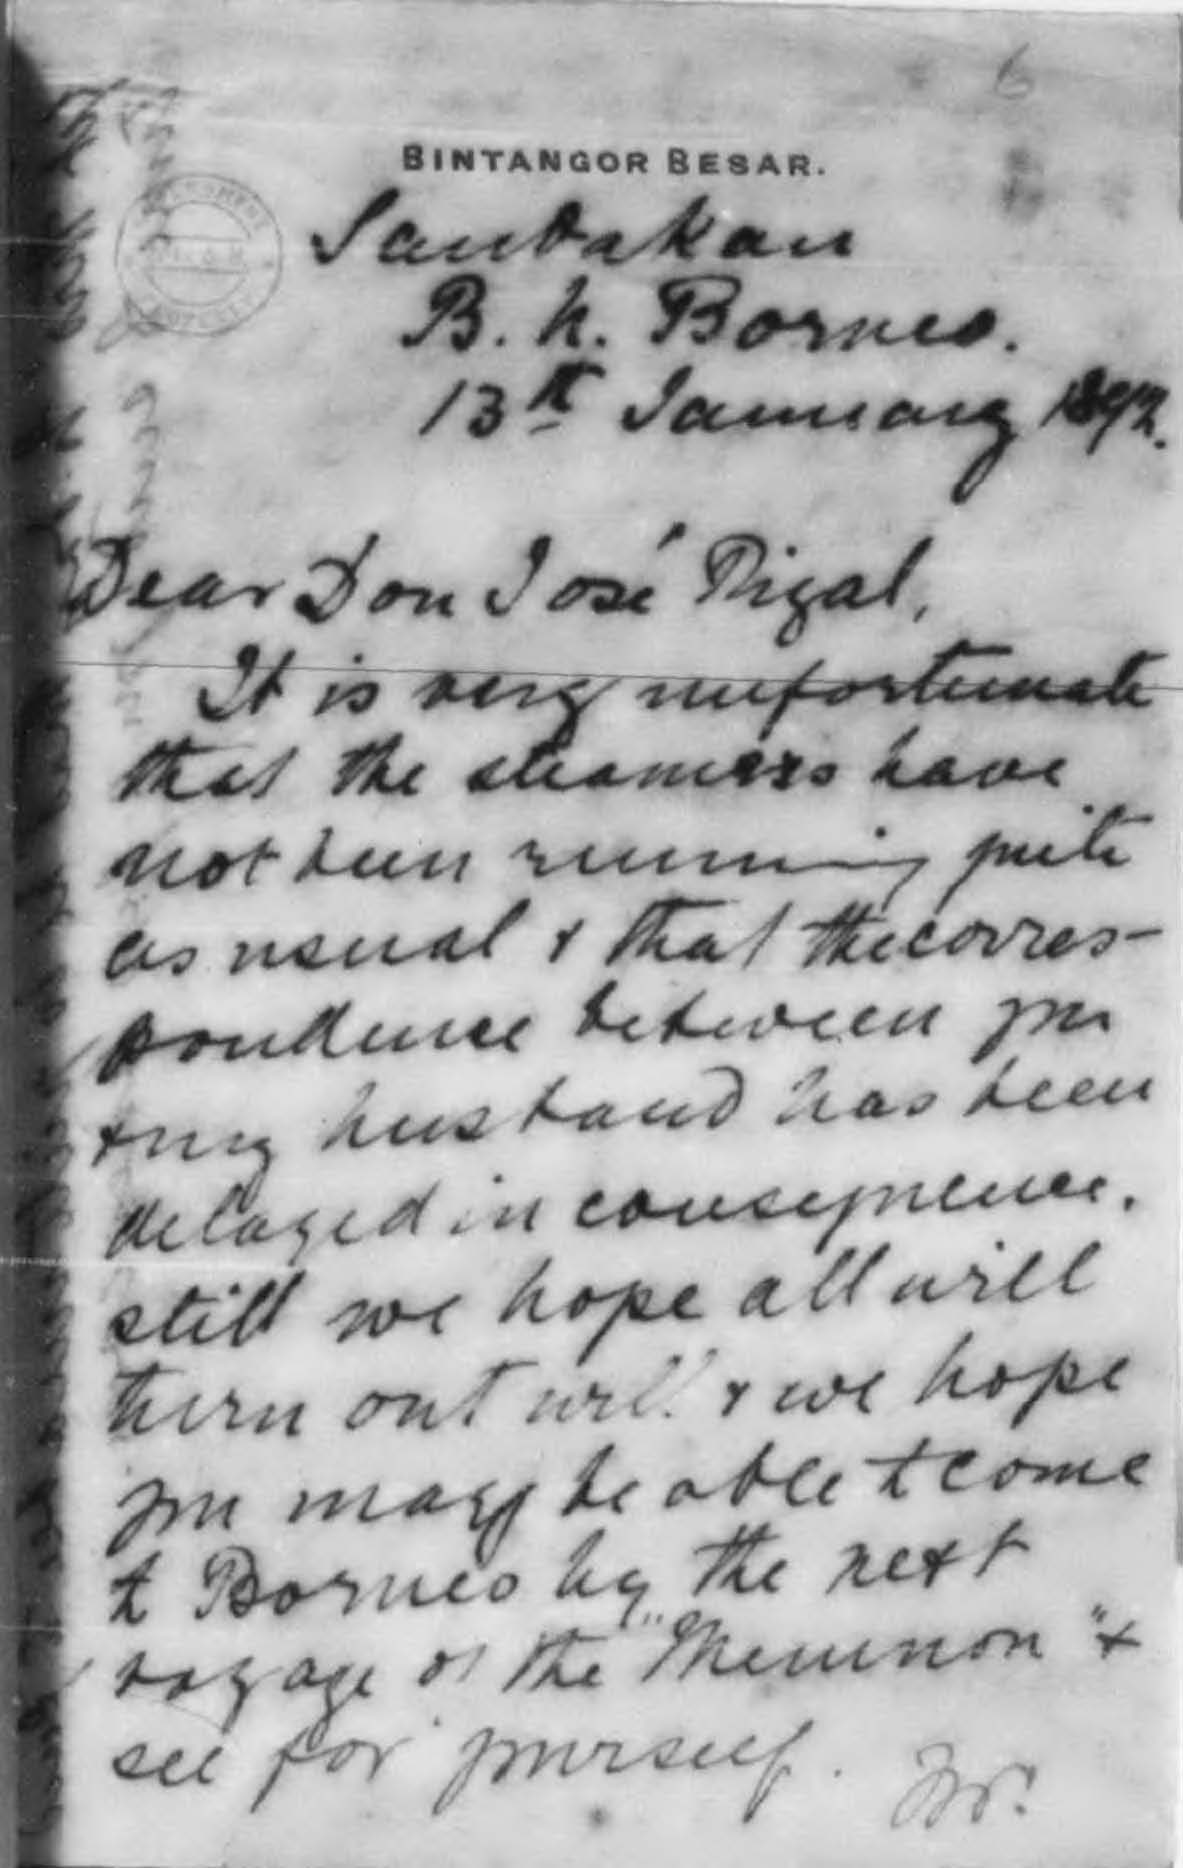 6
BINTANGOR BESAR.
Sandakan
B. N. Borneo.
13th January 1892.
Dear Don José Rizal,
It is very unfortunate
that the steamers have
not been running quite
as usual & that the corres-
pondence between you
& my husband has been
delayed in consequence.
still we hope all will
turn out well & we hope
you may be able to come
to Borneo by the next
voyage of the "Memnon" &
see for yourself.